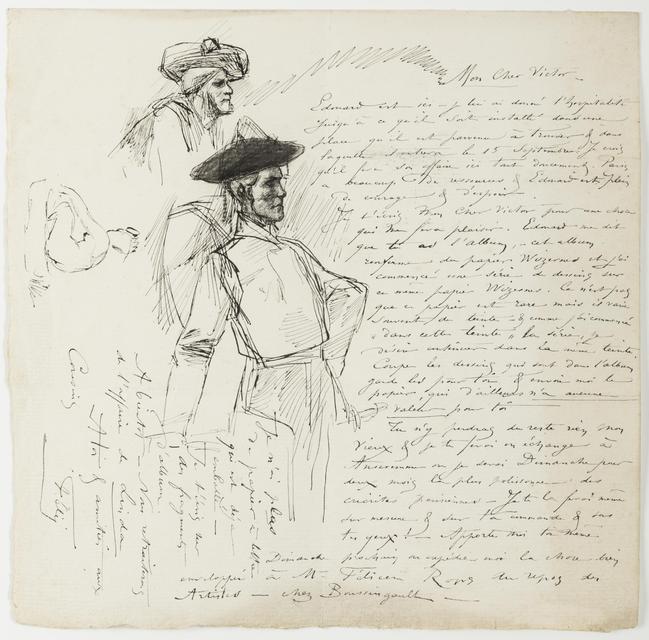 Mon Cher Victor —
Edouard est ici – je lui ai donné l'hospitalité
jusqu'à ce qu'il soit installé dans une
place qu'il est parvenu à trouver & dans
laquelle il entrera le 15 Septembre. Je crois
qu'il fera son affaire ici tout doucement, Paris
a beaucoup de ressources & Edouard est plein
de courage & d'espoir.
Je t'écris Mon Cher Victor pour une chose
qui me fera plaisir. Edouard me dit
que tu as l'album, – cet album
renferme du papier et j'ai
commencé une série de dessins sur
ce même papier. Ce n'est pas
que ce papier est rare mais il varie
souvent de teinte & comme j'ai commencé
"dans cette teinte" la série, je
désire continuer dans la même teinte.
Coupe les dessins qui sont dans l'album
garde les pour toi & envoie moi le
papier, qui d'ailleurs n'a aucune
valeur pour toi
Tu n'y perdras du reste rien mon
Vieux & je te ferai en échange à
Anseremme où je serai Dimanche pour
deux mois la plus polissonne des
parisiennes – Je te la ferai même
sur mesure & sur ta commande & sous
tes yeux! – Apporte moi ta
Dimanche prochain ou expédie moi la chose bien
enveloppée à Mr Félicien Rops au repos des
Artistes — chez Boussingault —
Je n'ai plus
de papier à lettre
qui est déjà
emballé –
Je t'écris sur
des fragments
d'album.
A bientôt – Nous
de l'affaire de
& amitiés aux
Fély